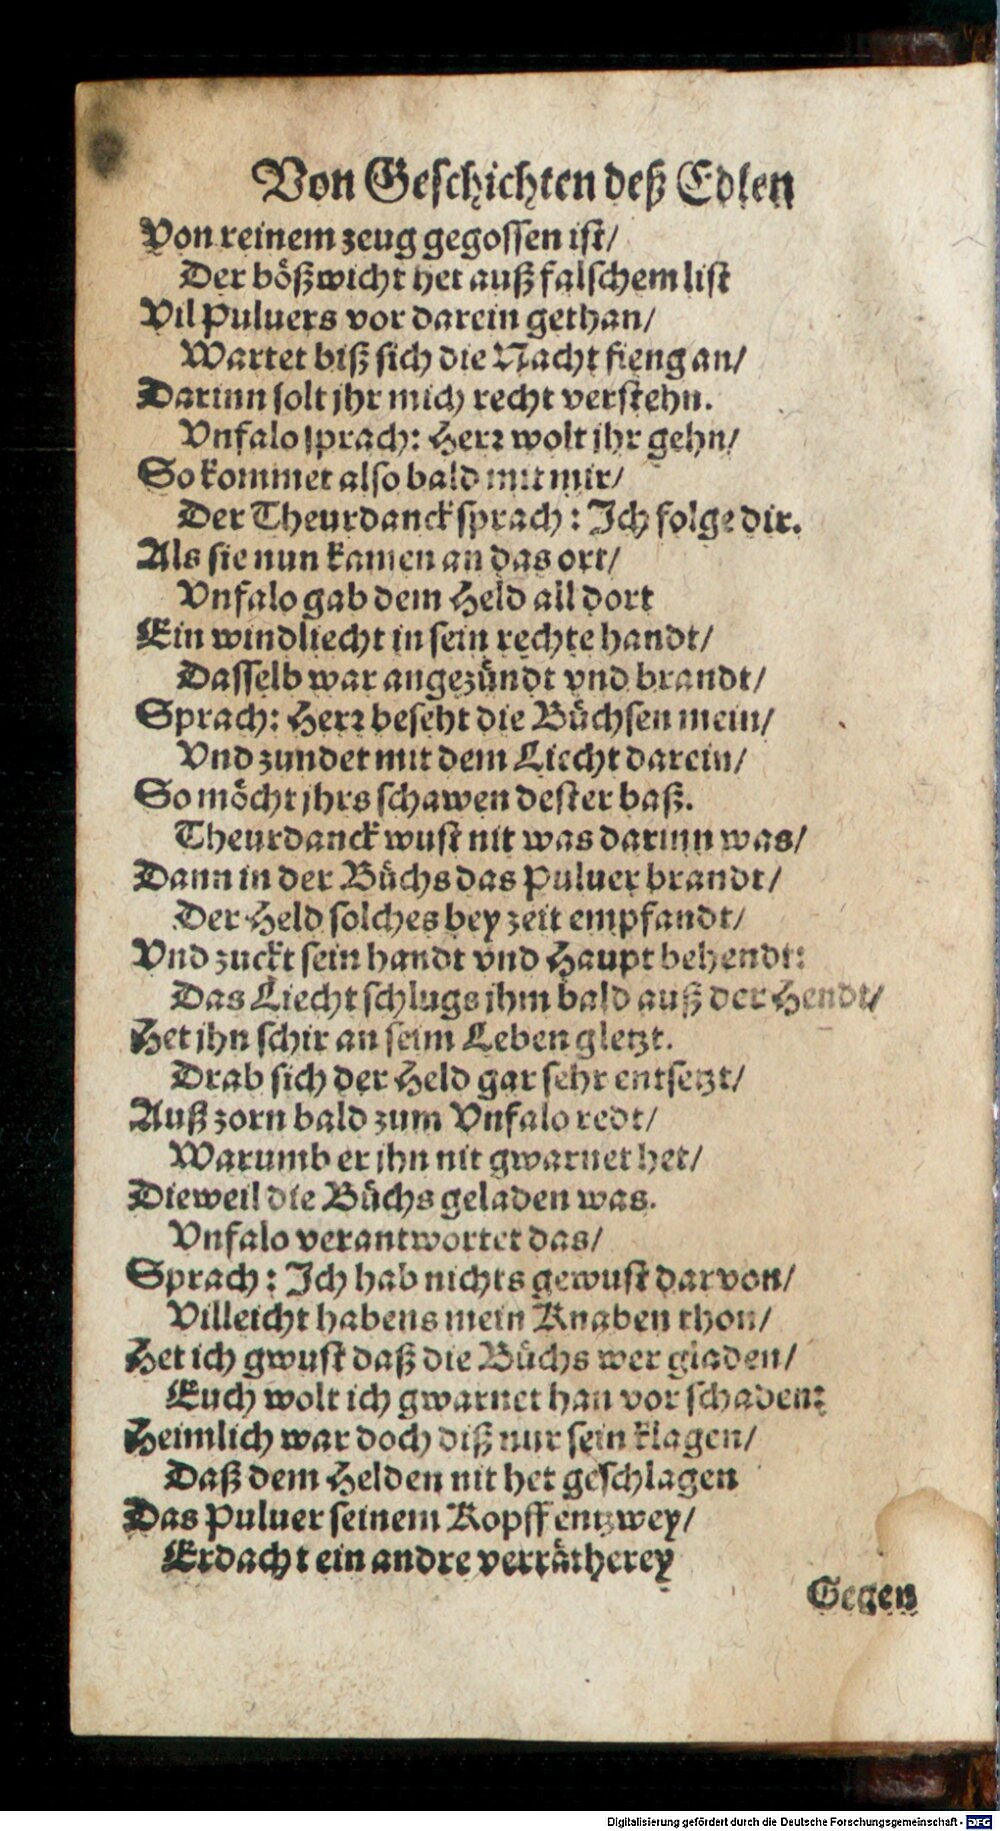 Von Geschichten deß Edlen
Von reinem zeug gegossen ist/
Der bößwicht het auß falschem list
Vil Puluers vor darein gethan/
Wartet biß sich die Nacht fieng an/
Darinn solt jhr mich recht verstehn.
Vnfalo sprach: Herr wolt jhr gehn/
So kommet also bald mit mir/
Der Theurdanck sprach: Ich folge dir.
Als sie nun kamen an das ort/
Vnfalo gab dem Held all dort
Ein windliecht in sein rechte handt/
Dasselb war angezündt vnd brandt/
Sprach: Herr beseht die Büchsen mein/
Vnd zundet mit dem Liecht darein/
So möcht jhrs schawen dester baß.
Theurdanck wust nit was darinn was/
Dann in der Büchs das Puluer brandt/
Der Held solches bey zeit empfandt/
Vnd zuckt sein handt vnd Haupt behendt:
Das Liecht schlugs jhm bald auß der Hendt/
Het jhn schir an seim Leben gletzt.
Drab sich der Held gar sehr entsetzt/
Auß zorn bald zum Vnfalo redt/
Warumb er jhn nit gwarnet het/
Dieweil die Büchs geladen was.
Vnfalo verantwortet das/
Sprach: Ich hab nichts gewust darvon/
Villeicht habens mein Knaben thon/
Het ich gwust daß die Büchs wer gladen/
Euch wolt ich gwarnet han vor schaden:
Heimlich war doch diß nur sein klagen/
Daß dem Helden nit het geschlagen
Das Puluer seinem Kopff entzwey/
Erdacht ein andre verrätherey
Gegen
Digitalisierung gefördert durch die Deutsche Forschungsgemeinschaft - DFG